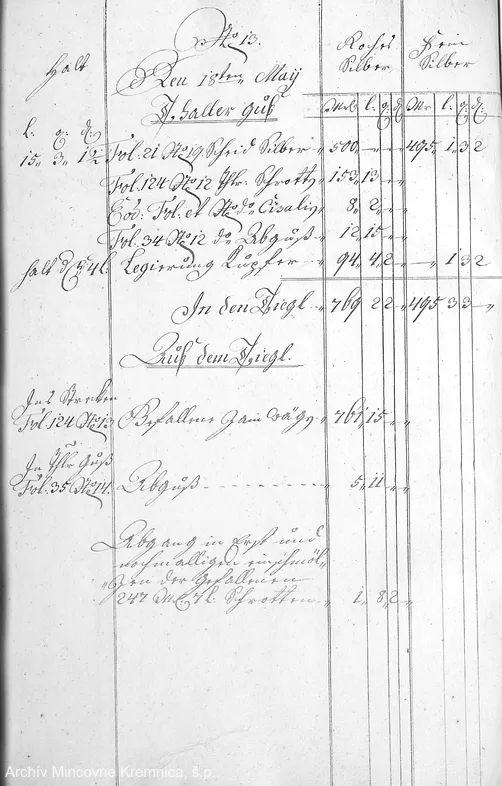 No 13.
Halt
Den 18ten May
Rohes Silber
Fein Silber
Thaller guß
l: q: d:
Mrk l: q: d
Mr l: q: d
15„ 3„ Fol: 21 No 19. Scheid Silber „ 500„ — — — 495„ 1„ 3 2
Fol. 124 No 12 Thlr: Schrotten „ 153„ 13 „ „
Eod: Fol. et No do Cisalien „ 8„ 2 „ „
Fol. 34 No 12 do Abguß „ 12„ 15 „ „
Legierung Kupfer „ 94„ 4„ 2 — „ 1 3 2
In den Tiegl „ 769 2 2 „ 495 3 3 „
Auß dem Tiegl.
Ins Strecken
Fol. 124 No 13 Befallene Zain wäg: „ 761„ 15 „ „
In Thlr Guß
Fol. 35 No 14. Abguß - - - - - „ 5„ 11 „ „
Abgang in Erst und
nochmalligen einschmöl„
„tzen der Gefallenen
247 M: 7 l: Schrotten „ 1„ 8„ 2 „
Archív Mincovne Kremnica, š.p.